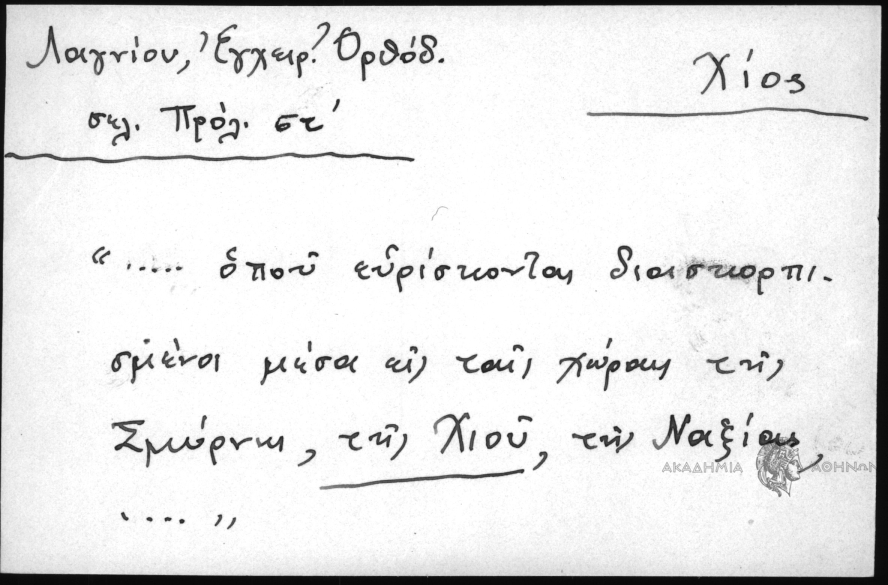 Λαγνίου, Ἐγχειρ. Ὀρθόδ.
σελ. Πρόλ. στʹ
Χίος
"..... ὁποῦ εὑρίσκονται διασκορπι-
σμένοι μέσα εἰς ταῖς χώραις τῆς
Σμύρνης, τῆς Χιοῦ, τῆς Ναξίας,
ΑΚΑΔΗΜΙΑ ΑΘΗΝΩΝ
..... "